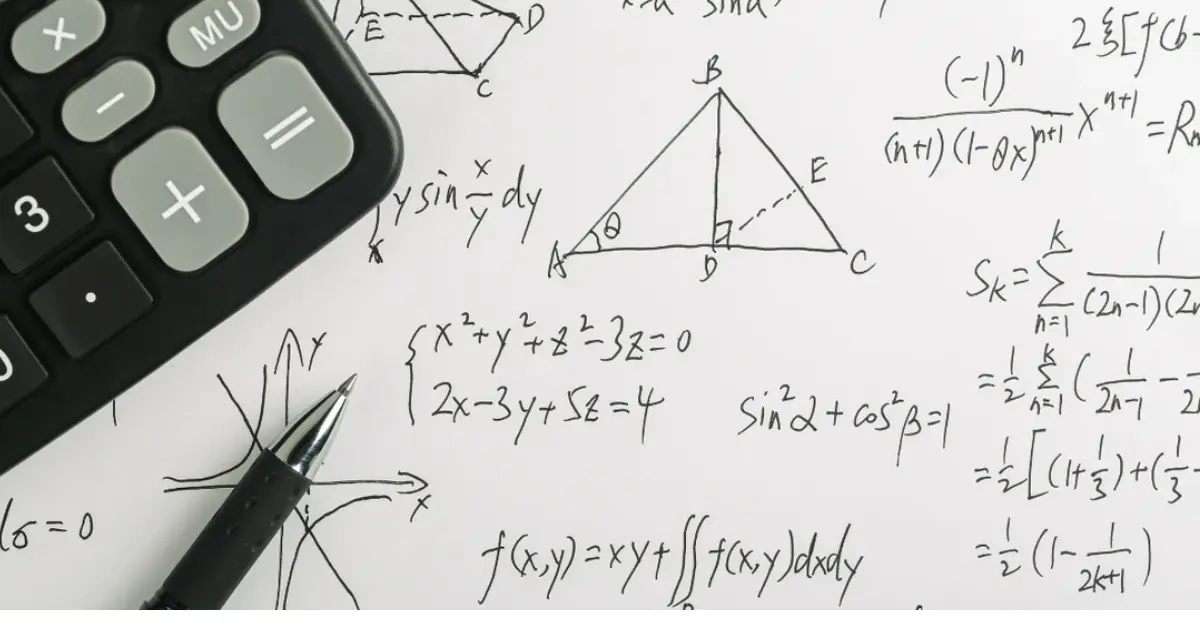 × MU
− =
3 +
.
E D
C
sin α
2ξ[f(b-
B
E
θ
A D C
(-1)^n / (n+1)(1-θx)^{n+1} x^{n+1} = Rn
y sin x/y dy
x
S_k = Σ_{n=1}^{k} 1/(2n-1)(2n
= 1/2 Σ_{n=1}^{k} (1/(2n-1) -
= 1/2 [(1+1/3)+(1/3-
= 1/2 (1 - 1/(2k+1))
{ x²+y²+z²-3z=0
2x-3y+5z=4
sin²α+cos²β=1
y
x
σ=0
f(x,y)=xy+∬f(x,y)dxdy